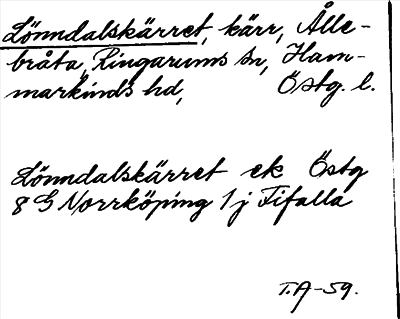 Lönndalskärret, kärr, Ålle-
bråta, Ringarums sn, Ham-
markinds hd, Östg. l.
Lönndalskärret ek Östg
8 G Norrköping 1 j Fifalla
T.A-59.